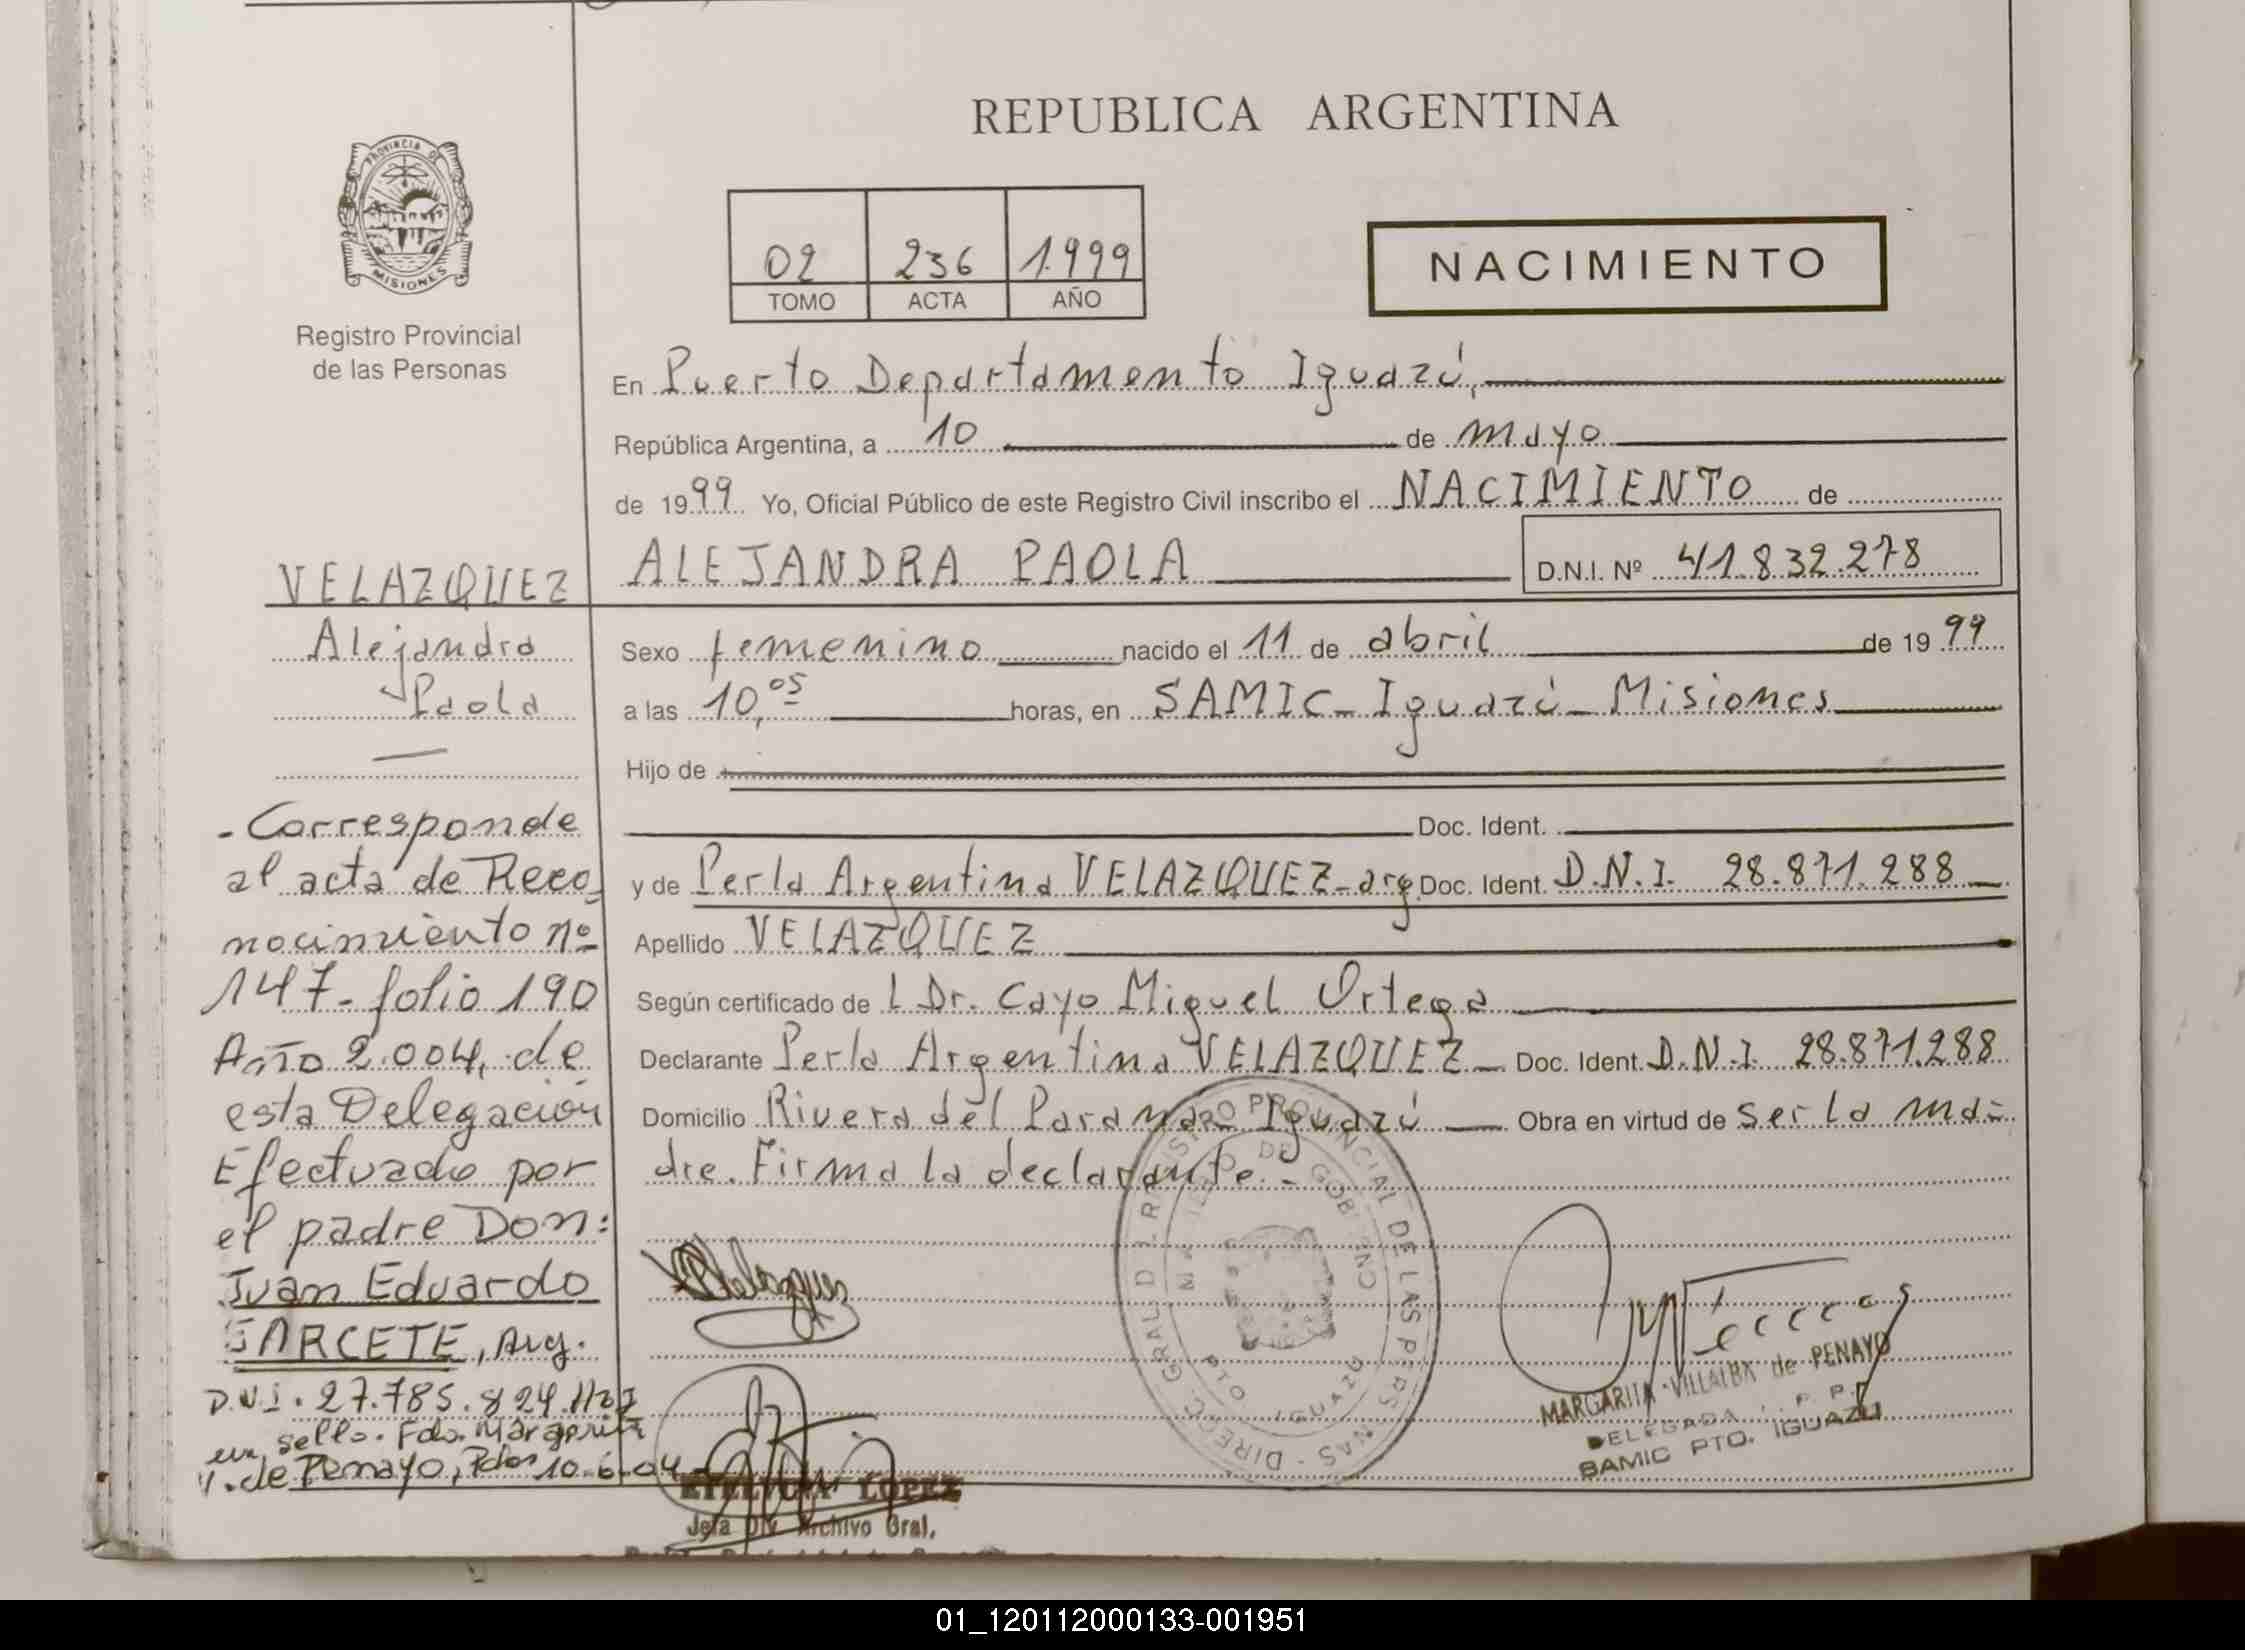 REPUBLICA ARGENTINA
PROVINCIA DE
MISIONES
Registro Provincial
de las Personas
02 236 1.999
TOMO ACTA AÑO
NACIMIENTO
En Puerto Departamento Iguazú,
República Argentina, a 10 de mayo
de 1999 Yo, Oficial Público de este Registro Civil inscribo el NACIMIENTO de
ALEJANDRA PAOLA D.N.I. Nº 41.832.278
VELAZQUEZ
Alejandra
Paola
Sexo femenino nacido el 11 de abril de 1999
a las 10,05 horas, en SAMIC_ Iguazú_ Misiones
Hijo de
Doc. Ident.
y de Perla Argentina VELAZQUEZ-arg Doc. Ident. D.N.I. 28.871.288
Apellido VELAZQUEZ
Según certificado de L Dr. Cayo Miguel Ortega
Declarante Perla Argentina VELAZQUEZ Doc. Ident. D.N.I. 28.871.288
Domicilio Rivera del Parana Iguazú Obra en virtud de ser la ma-
dre. Firma la declarante.-
- Corresponde
al acta de Reco-
nocimiento nº
147- folio 190
Año 2.004, de
esta Delegación
Efectuado por
el padre Don:
Juan Eduardo
SARCETE, Arg.
D.N.I. 27.785.824
sello. Fdo. Margarita
V. de Penayo, 10-6-04
Velazquez
DIREC. GRAL D L REGISTRO PROVINCIAL DE LAS PERSONAS
GOBIERNO
PTO IGUAZU
MARGARITA VILLALBA de PENAYO
DELEGADA
SAMIC PTO. IGUAZU
LOPEZ
Jefa Div Archivo Gral.
01_120112000133-001951